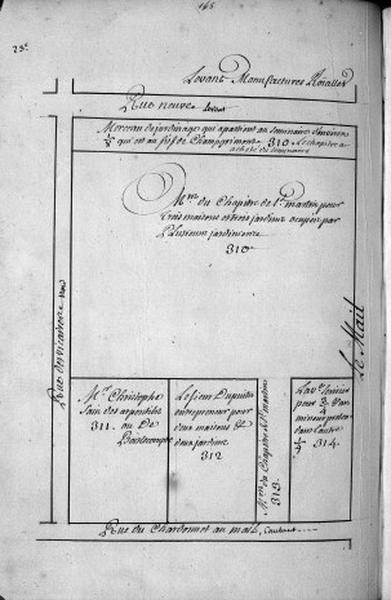 165
23e
Levant Manufactures Roialles
Rue neuve levant
Morceau de jardinage qui apartient au seminaire
qui est au fief de Champgrimont 310 Le chapitre a
acheté du seminaire
Mrs. du Chapitre de St. martin pour
trois maisons et trois jardins occupez par
Plusieurs jardiniers
310
Rue des vicaires nord
Le Mail
Mr. Christophe
Sain des arpentils
311. ou De
Boislecompte
Le Sieur Dupuits
entrepreneur pour
deux maisons et
deux jardins
312
Mrs. du Chapitre de St. martin
313
La ve.
pour 3/4 d'un
mineur
dans l'autre
1/4 314.
Rue du Chardonnet au mail, couchant